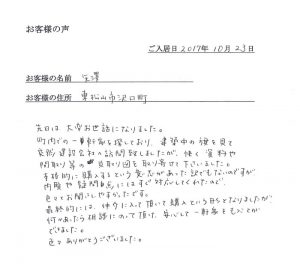 お客様の声
ご入居日 2017年 10月 23日
お客様の名前
お客様の住所 東松山市沢口町
先日は大変お世話になりました。
町内での一軒家を探しており、建築中の旗を見て
建設会社へ訪問致しましたが、快く資料や
間取り等の見取図を取り寄せて下さいました。
本格的に購入するという意志があった訳でもないのですが
内覧や疑問点にはすぐ対応してくれたので、
色々とお聞きしやすかったです。
最終的には、仲介に入って頂いて購入という形となりましたが、
何かあったら相談にのって頂け、安心して一軒家をもつことが
できました。
色々ありがとうございました。